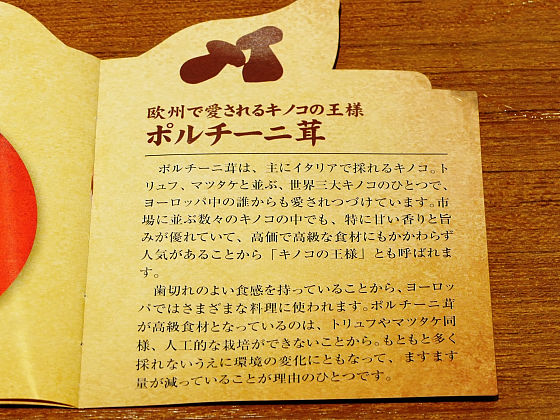 欧州で愛されるキノコの王様
ポルチーニ茸
ポルチーニ茸は、主にイタリアで採れるキノコ。ト
リュフ、マツタケと並ぶ、世界三大キノコのひとつで、
ヨーロッパ中の誰からも愛されつづけています。市
場に並ぶ数々のキノコの中でも、特に甘い香りと旨
みが優れていて、高価で高級な食材にもかかわらず
人気があることから「キノコの王様」とも呼ばれま
す。
歯切れのよい食感を持っていることから、ヨーロッ
パではさまざまな料理に使われます。ポルチーニ茸
が高級食材となっているのは、トリュフやマツタケ同
様、人工的な栽培ができないことから。もともと多く
採れないうえに環境の変化にともなって、ますます
量が減っていることが理由のひとつです。